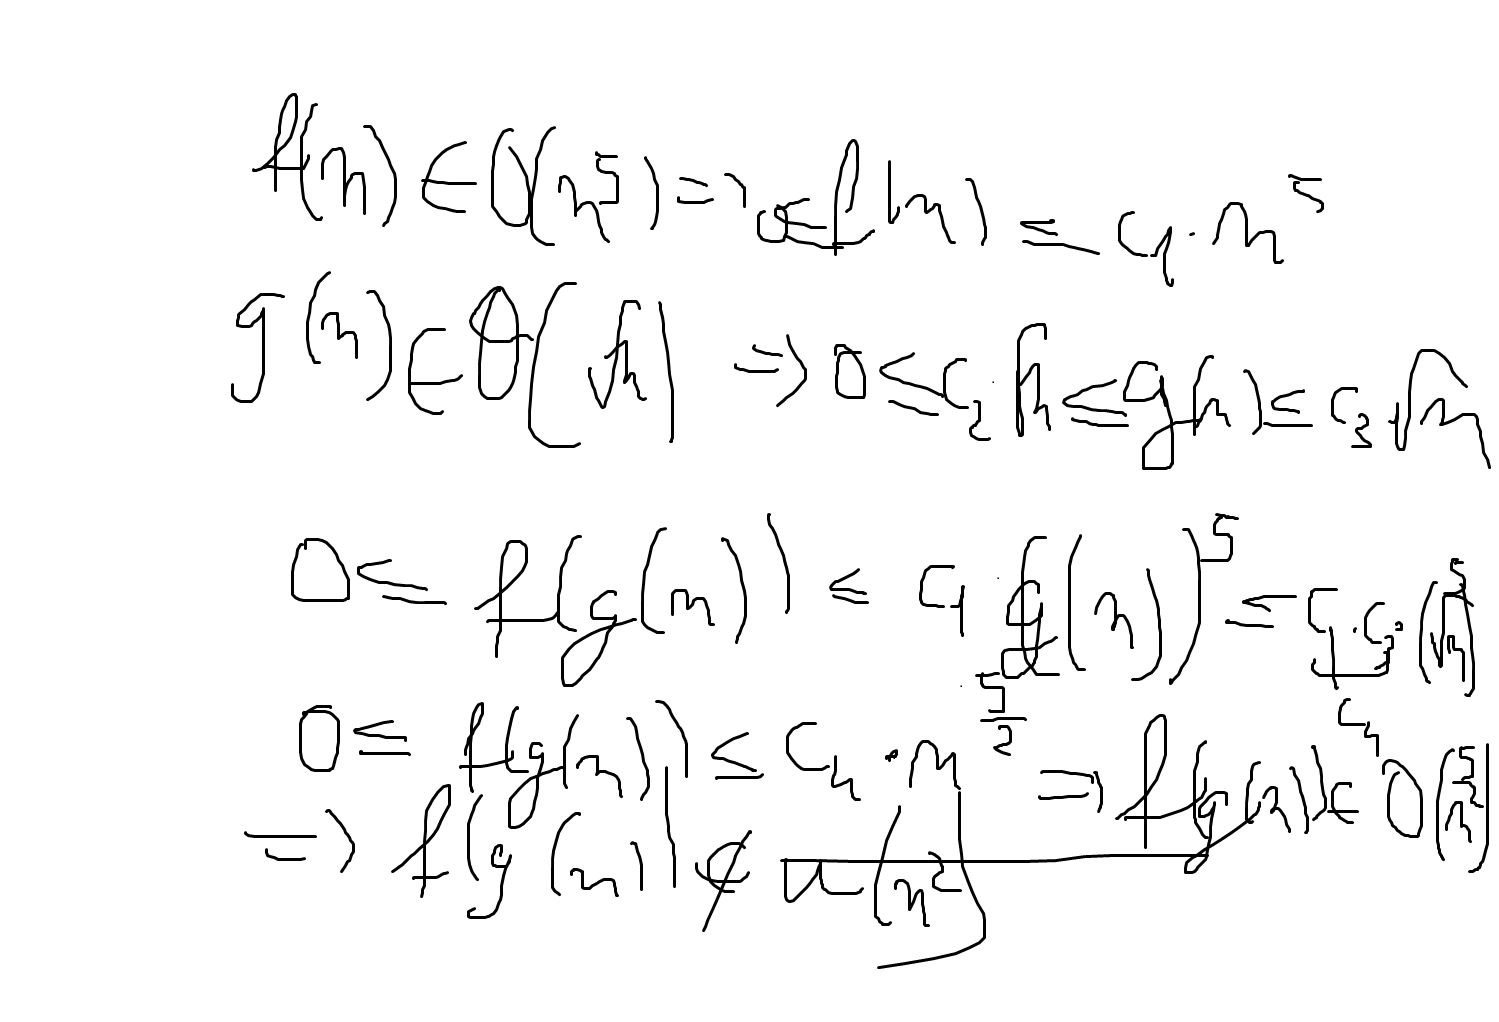 f(n) ∈ O(n^5) => 0 ≤ f(n) ≤ c₁ · n^5
g(n) ∈ Θ(√n) => 0 ≤ c₂ · √n ≤ g(n) ≤ c₃ · √n
0 ≤ f(g(n)) ≤ c₁ · g(n)^5 ≤ c₁ · c₃ · (√n^5)
c₄
0 ≤ f(g(n)) ≤ c₄ · n^(5/2) => f(g(n)) ∈ O(n^(5/2))
=> f(g(n)) ∉ (n^2)